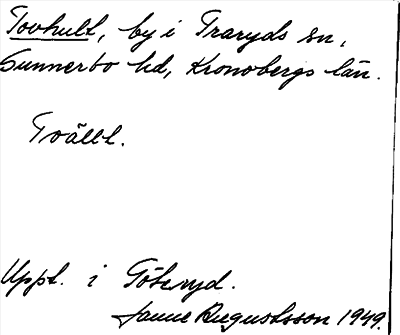 Tovhult, by i Traryds sn,
Sunnerbo hd, Kronobergs län.
Tvällt.
Uppt. i Göteryd.
Janne Augustsson 1949.